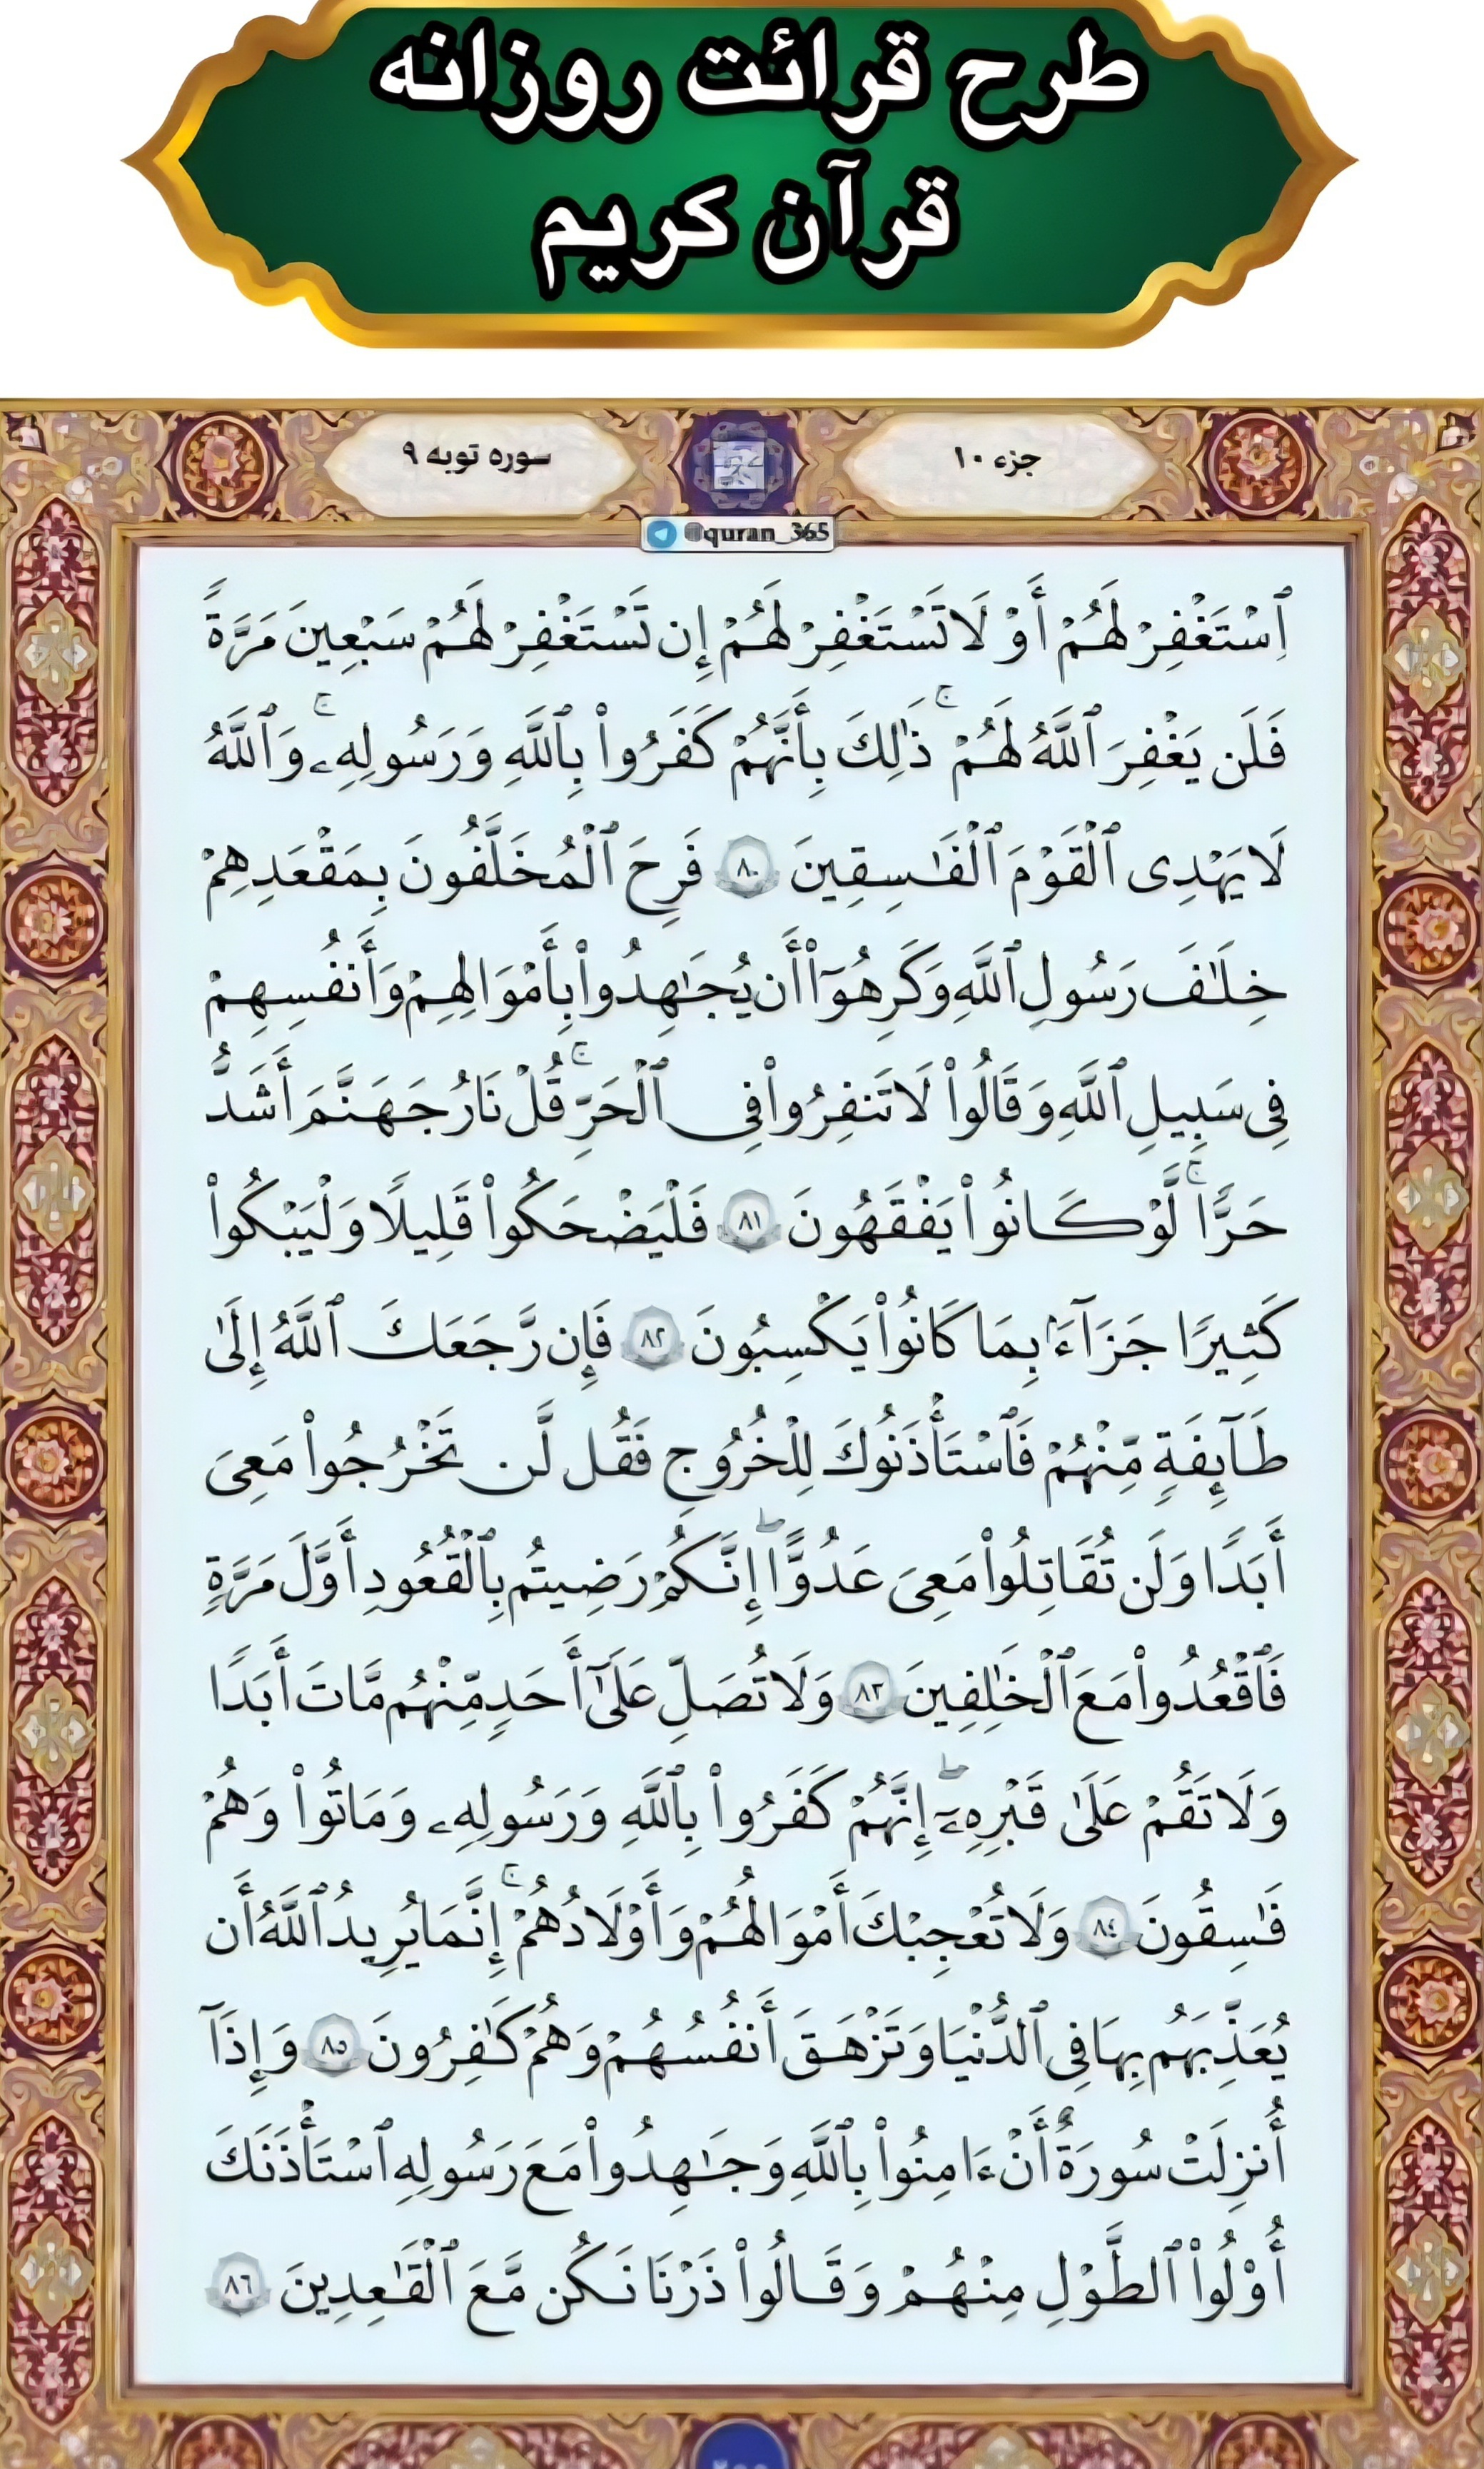 طرح قرائت روزانه
قرآن کریم
جزء ۱۰
سوره توبه ۹
@quran_365
ٱسْتَغْفِرْ لَهُمْ أَوْ لَا تَسْتَغْفِرْ لَهُمْ إِن تَسْتَغْفِرْ لَهُمْ سَبْعِينَ مَرَّةً
فَلَن يَغْفِرَ ٱللَّهُ لَهُمْ ۚ ذَٰلِكَ بِأَنَّهُمْ كَفَرُوا۟ بِٱللَّهِ وَرَسُولِهِۦ ۚ وَٱللَّهُ
لَا يَهْدِى ٱلْقَوْمَ ٱلْفَـٰسِقِينَ ٨٠ فَرِحَ ٱلْمُخَلَّفُونَ بِمَقْعَدِهِمْ
خِلَـٰفَ رَسُولِ ٱللَّهِ وَكَرِهُوٓا۟ أَن يُجَـٰهِدُوا۟ بِأَمْوَالِهِمْ وَأَنفُسِهِمْ
فِى سَبِيلِ ٱللَّهِ وَقَالُوا۟ لَا تَنفِرُوا۟ فِى ٱلْحَرِّ ۚ قُلْ نَارُ جَهَنَّمَ أَشَدُّ
حَرًّا ۚ لَّوْ كَانُوا۟ يَفْقَهُونَ ٨١ فَلْيَضْحَكُوا۟ قَلِيلًا وَلْيَبْكُوا۟
كَثِيرًا جَزَآءًۢ بِمَا كَانُوا۟ يَكْسِبُونَ ٨٢ فَإِن رَّجَعَكَ ٱللَّهُ إِلَىٰ
طَآئِفَةٍ مِّنْهُمْ فَٱسْتَـْٔذَنُوكَ لِلْخُرُوجِ فَقُل لَّن تَخْرُجُوا۟ مَعِىَ
أَبَدًا وَلَن تُقَاتِلُوا۟ مَعِىَ عَدُوًّا ۖ إِنَّكُمْ رَضِيتُم بِٱلْقُعُودِ أَوَّلَ مَرَّةٍ
فَٱقْعُدُوا۟ مَعَ ٱلْخَـٰلِفِينَ ٨٣ وَلَا تُصَلِّ عَلَىٰٓ أَحَدٍ مِّنْهُم مَّاتَ أَبَدًا
وَلَا تَقُمْ عَلَىٰ قَبْرِهِۦٓ ۖ إِنَّهُمْ كَفَرُوا۟ بِٱللَّهِ وَرَسُولِهِۦ وَمَاتُوا۟ وَهُمْ
فَـٰسِقُونَ ٨٤ وَلَا تُعْجِبْكَ أَمْوَالُهُمْ وَأَوْلَادُهُمْ ۚ إِنَّمَا يُرِيدُ ٱللَّهُ أَن
يُعَذِّبَهُم بِهَا فِى ٱلدُّنْيَا وَتَزْهَقَ أَنفُسُهُمْ وَهُمْ كَـٰفِرُونَ ٨٥ وَإِذَآ
أُنزِلَتْ سُورَةٌ أَنْ ءَامِنُوا۟ بِٱللَّهِ وَجَـٰهِدُوا۟ مَعَ رَسُولِهِ ٱسْتَـْٔذَنَكَ
أُو۟لُوا۟ ٱلطَّوْلِ مِنْهُمْ وَقَالُوا۟ ذَرْنَا نَكُن مَّعَ ٱلْقَـٰعِدِينَ ٨٦